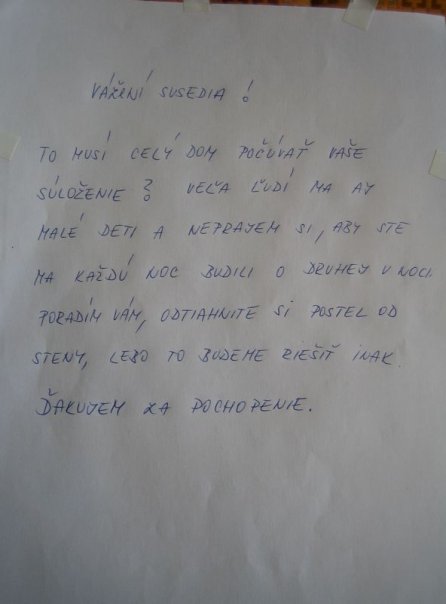 VÁŽENÍ SUSEDIA!
TO MUSÍ CELÝ DOM POČÚVAŤ VAŠE
SÚLOŽENIE? VEĽA ĽUDÍ MA AJ
MALÉ DETI A NEPRAJEM SI, ABY STE
MA KAŽDÚ NOC BUDILI O DRUHEJ V NOCI.
PORADÍM VÁM, ODTIAHNITE SI POSTEL OD
STENY, LEBO TO BUDEME RIEŠIŤ INAK.
ĎAKUJEM ZA POCHOPENIE.